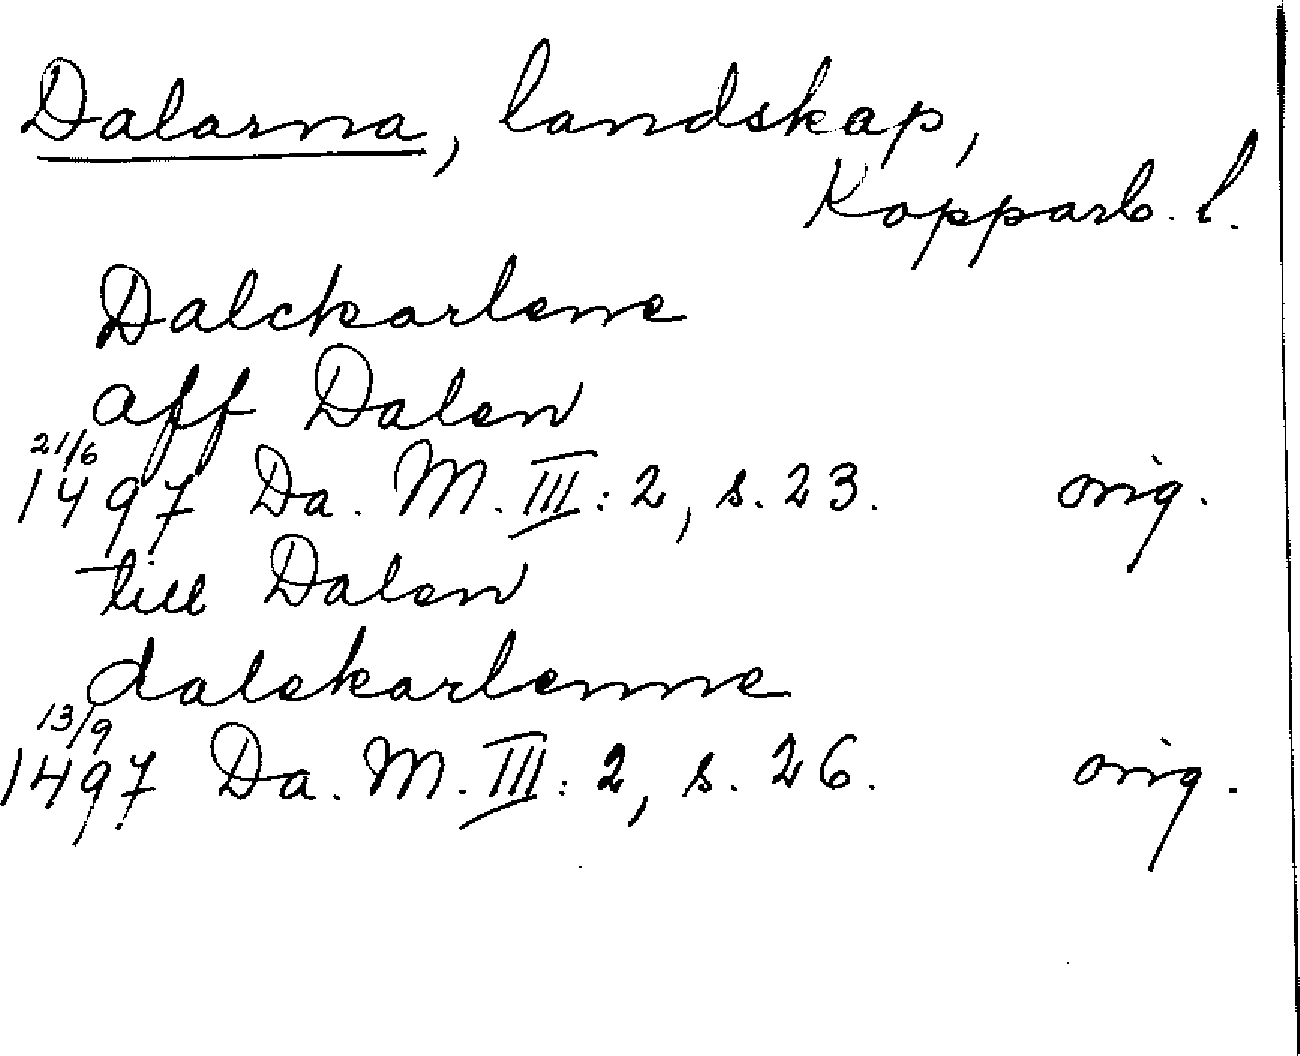 Dalarna, landskap,
Kopparb. l.
Dalckarlene
aff Dalen
21/6
1497 Da. M. III: 2, s. 23. orig.
till Dalen
dalekarlenne
13/9
1497 Da. M. III: 2, s. 26. orig.